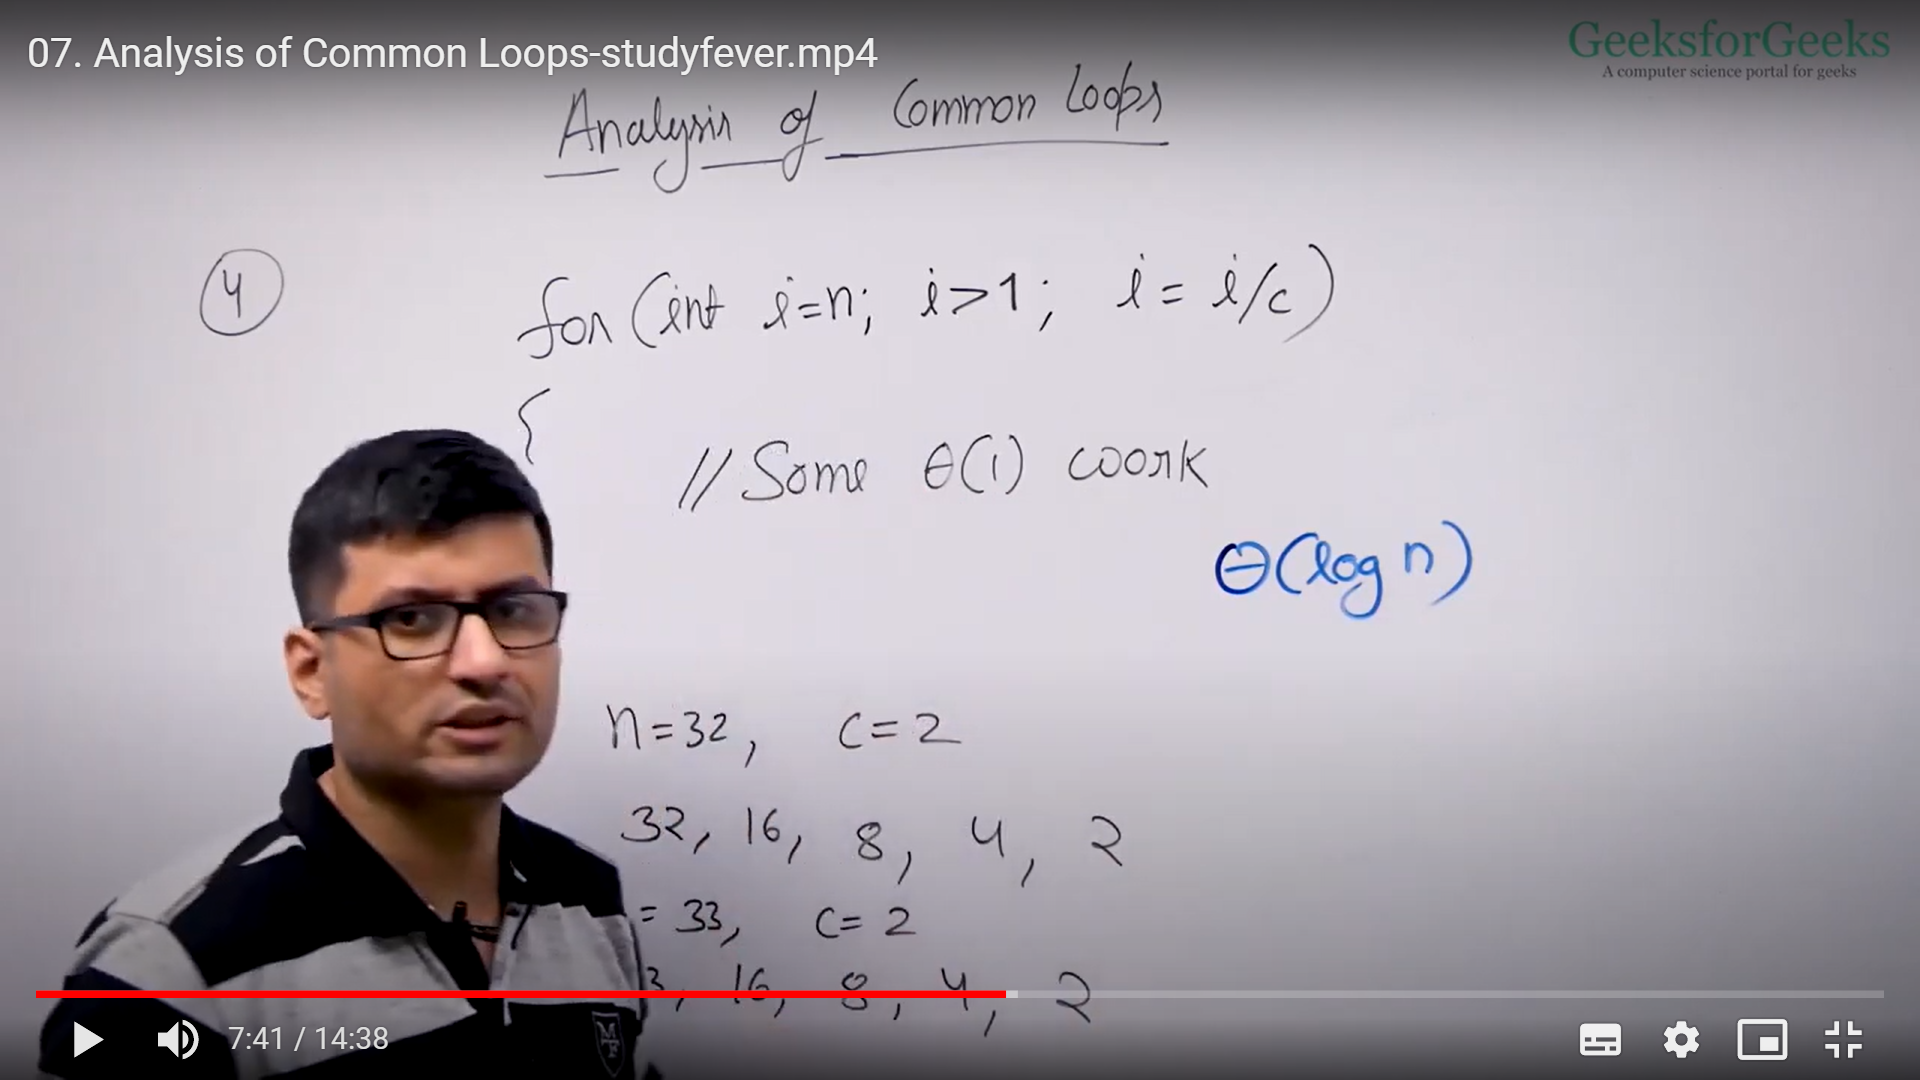 07. Analysis of Common Loops-studyfever.mp4
GeeksforGeeks
A computer science portal for geeks
Analysis of Common Loops
4
for (int i=n; i>1; i = i/c)
{
// Some θ(1) work
θ(log n)
n=32, c=2
32, 16, 8, 4, 2
= 33, c=2
3, 16, 8, 4, 2
7:41 / 14:38